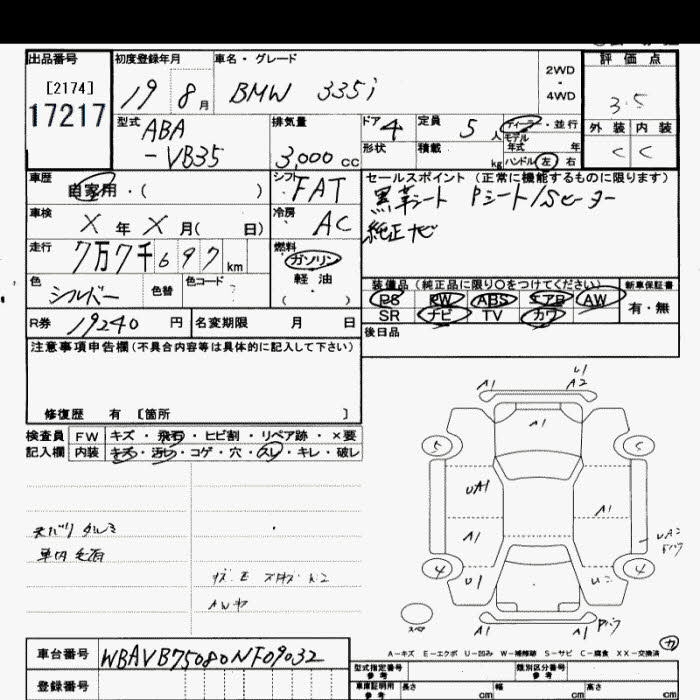 出品番号 初度登録年月 車名・グレード 評価点
[2174] 2WD
17217 19 8月 BMW 335i ・
4WD 3.5
型式 ABA 排気量 ドア 4 定員 5人 ディーラー・並行 外装 内装
-VB35 3,000cc 形状 積載 kg モデル年式 年 C C
ハンドル 左 右
車歴 シフト セールスポイント(正常に機能するものに限ります)
自家用・( ) FAT 黒革シート Pシート/Sヒーター
車検 冷房 純正ナビ
X年X月( 日) AC
走行 燃料
7万7千697km ガソリン
軽油
色 色替 色コード ( ) 装備品(純正品に限り○をつけてください) 新車保証書
シルバー PS PW ABS エアB AW 有・無
SR ナビ TV カワ
R券 19240円 名変期限 月 日 後日品
注意事項申告欄(不具合内容等は具体的に記入して下さい)
修復歴 有 [箇所 ]
検査員 FW キズ・飛石・ヒビ割・リペア跡・×要
記入欄 内装 キズ・汚レ・コゲ・穴・スレ・キレ・破レ
A1 U1
A2
A1
5 5
UA1
A1 A1
4 4
U1
スペア
A1 A1
カ
A-キズ E-エクボ U-凹み W-補修跡 S-サビ C-腐食 XX-交換済
車台番号 WBAVB75080NF09032
登録番号
型式指定番号 参考 類別区分番号 参考
車庫証明用 参考 長さ cm 幅 cm 高さ cm